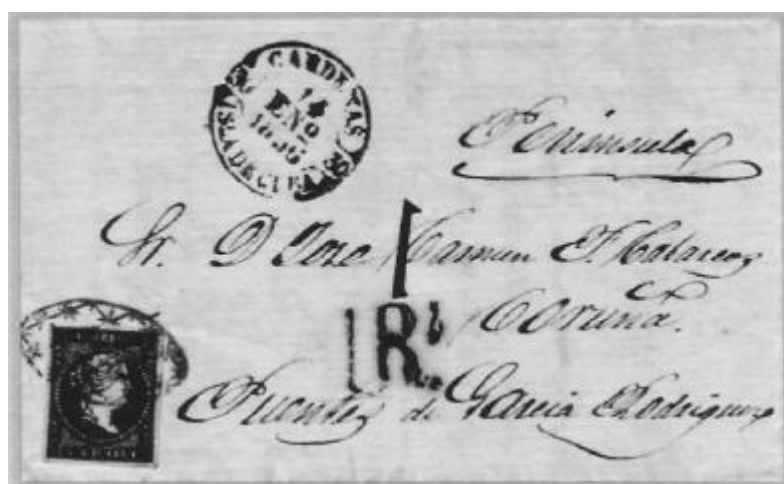 CARDENAS
14
ENO
1856
ISLA DE CUBA
Peninsula
Sr. D. Jose Carmen F.
1
1 Rl
Coruña.
Puentes de Garcia Rodriguez